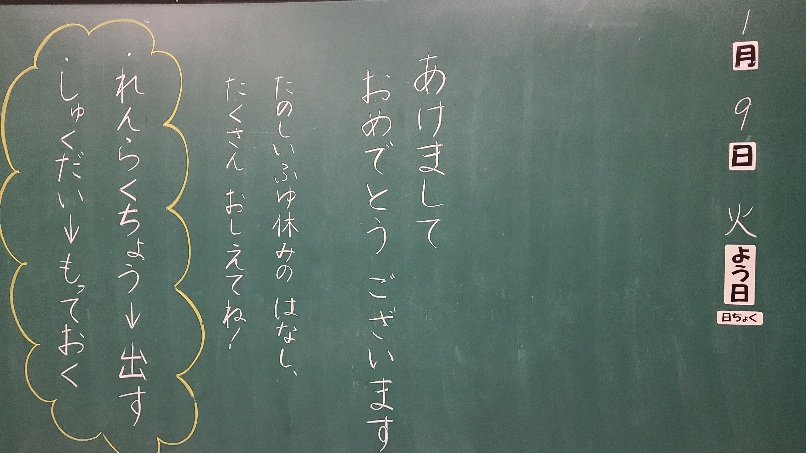 1月9日火よう日
日ちょく
あけまして
おめでとう ございます
たのしいふゆ休みの はなし、
たくさん おしえてね!
・れんらくちょう→出す
・しゅくだい→もっておく